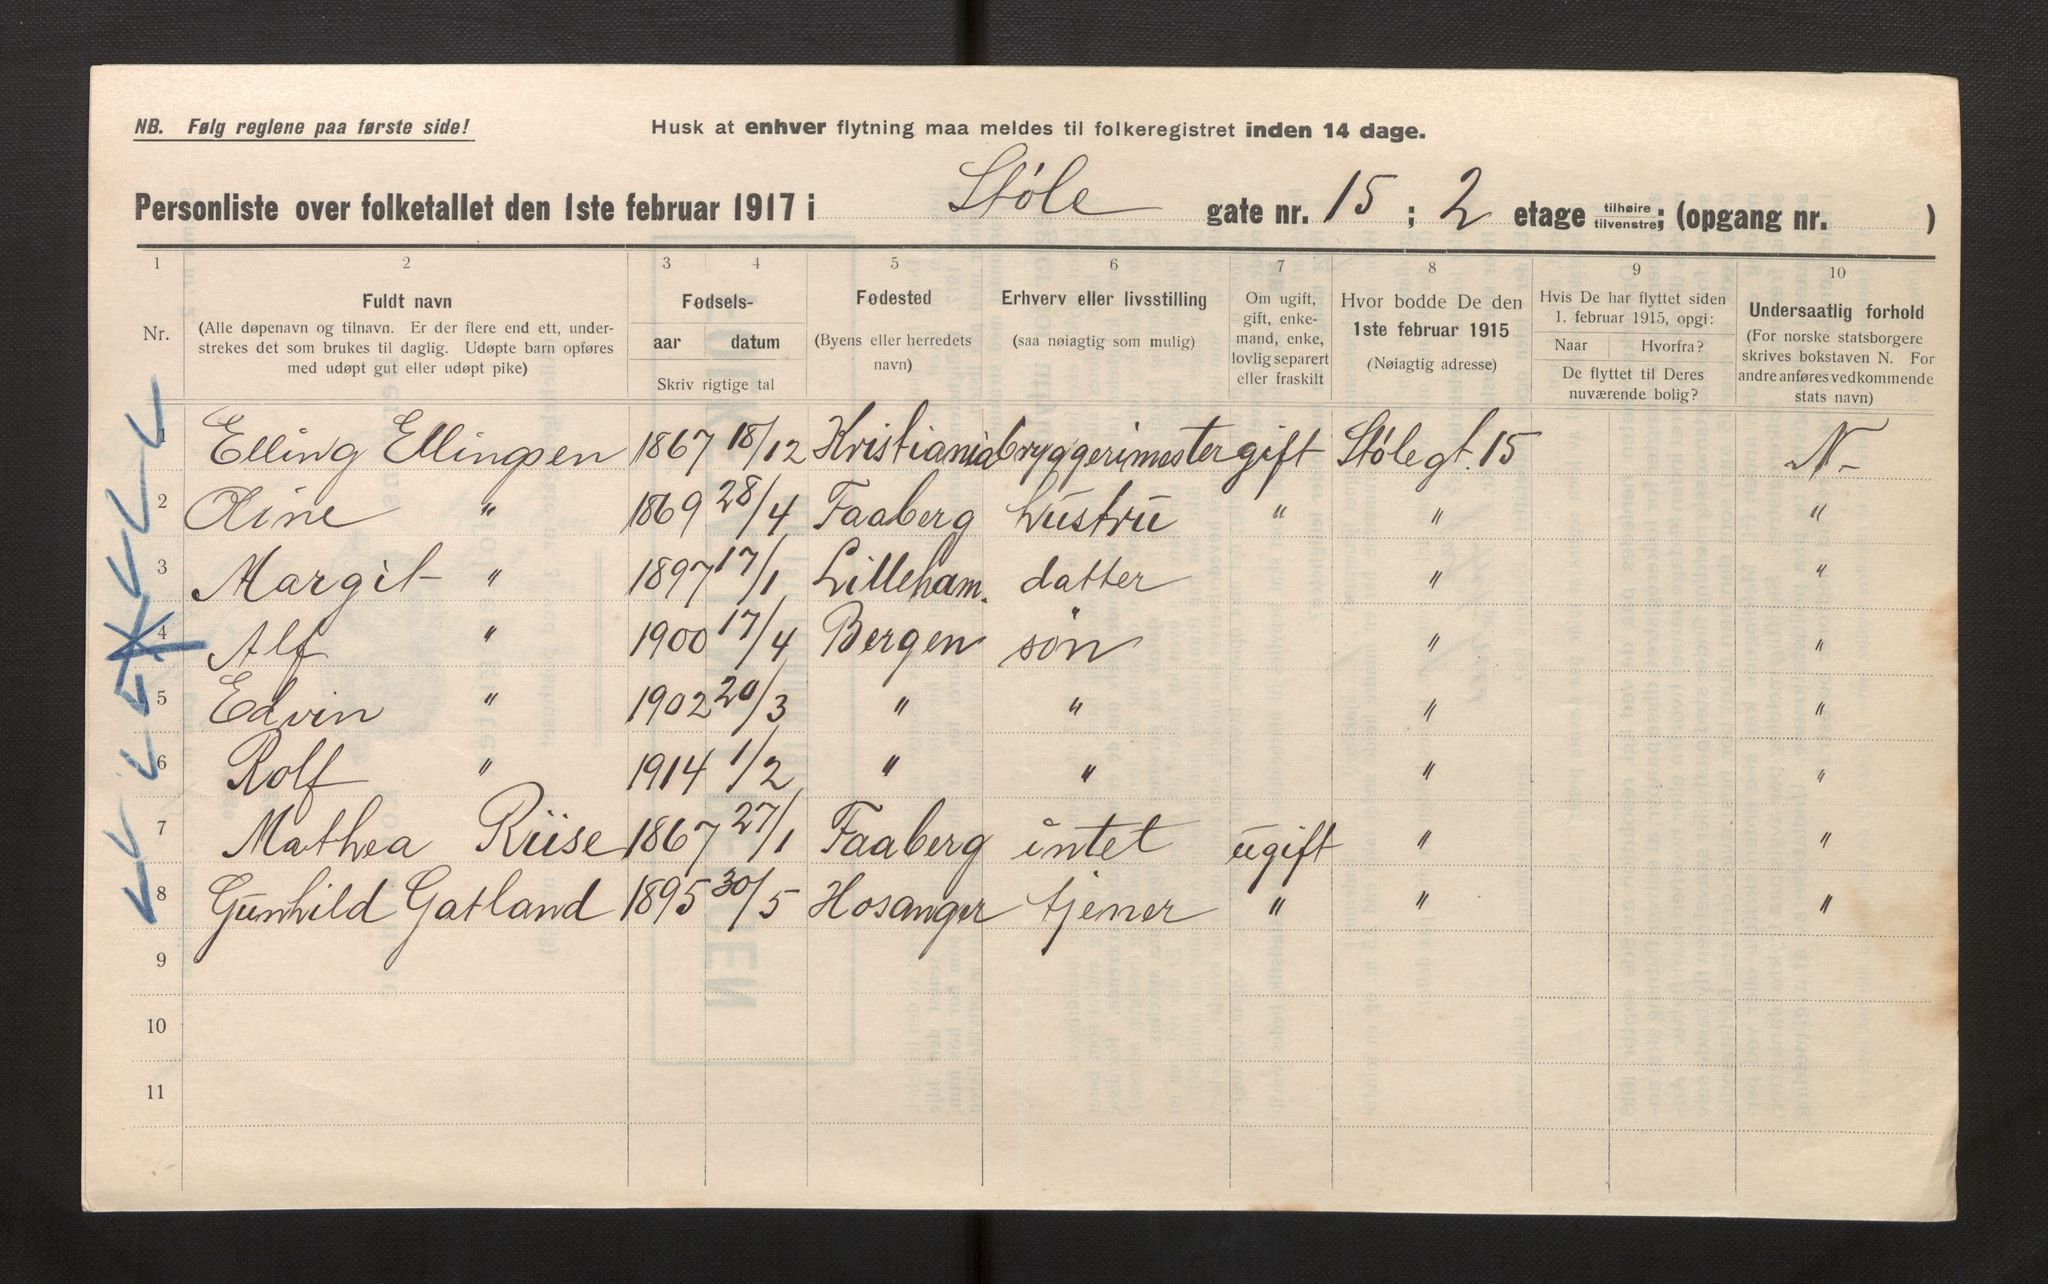 NB. Følg reglene paa første side!
Husk at enhver flytning maa meldes til folkeregistret inden 14 dage.
Personliste over folketallet den 1ste februar 1917 i Støle gate nr. 15 ; 2 etage tilhøire tilvenstre; (opgang nr. )
1 2 3 4 5 6 7 8 9 10
Nr.
Fuldt navn
(Alle døpenavn og tilnavn. Er der flere end ett, under-
strekes det som brukes til daglig. Udøpte barn opføres
med udøpt gut eller udøpt pike)
Fødsels-
aar datum
Skriv rigtige tal
Fødested
(Byens eller herredets
navn)
Erhverv eller livsstilling
(saa nøiagtig som mulig)
Om ugift,
gift, enke-
mand, enke,
lovlig separert
eller fraskilt
Hvor bodde De den
1ste februar 1915
(Nøiagtig adresse)
Hvis De har flyttet siden
1. februar 1915, opgi:
Naar Hvorfra?
De flyttet til Deres
nuværende bolig?
Undersaatlig forhold
(For norske statsborgere
skrives bokstaven N. For
andre anføres vedkommende
stats navn)
1 Elling Ellingsen 1867 18/12 Kristiania bryggerimester gift Stølegt. 15 N-
2 Oline " 1869 28/4 Faaberg hustru " " "
3 Margit " 1897 17/1 Lilleham. datter " "
4 Alf " 1900 17/4 Bergen søn " "
5 Edvin " 1902 20/3 " " " "
6 Rolf " 1914 1/2 " " " "
7 Mathea Riise 1867 27/1 Faaberg intet ugift " "
8 Gunhild Gatland 1895 30/5 Hosanger tjener " " "
9
10
11